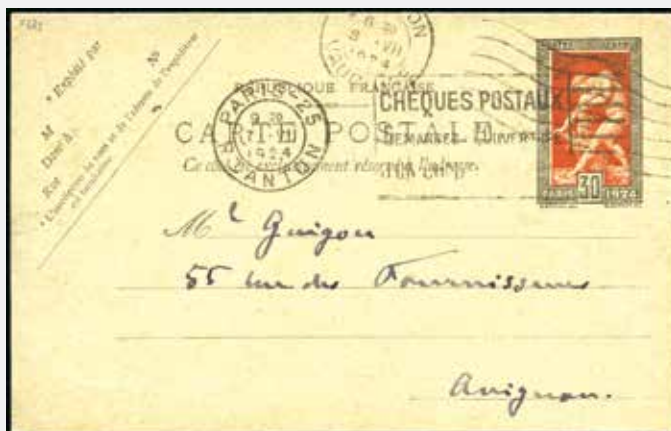 * Expédié par
M
Rue
* L'inscription du nom et de l'adresse de l'expéditeur
est facultative
VAUCLUSE
1924
RÉPUBLIQUE FRANÇAISE
CARTE POSTALE
Ce côté est exclusivement réservé à l'adresse.
PARIS-25
R. DANTON
1924
CHEQUES POSTAUX
DEMANDEZ L'OUVERTURE
D'UN CPTE
30
PARIS 1924
Mr Guigou
55 rue des Fournisseurs
Avignon.